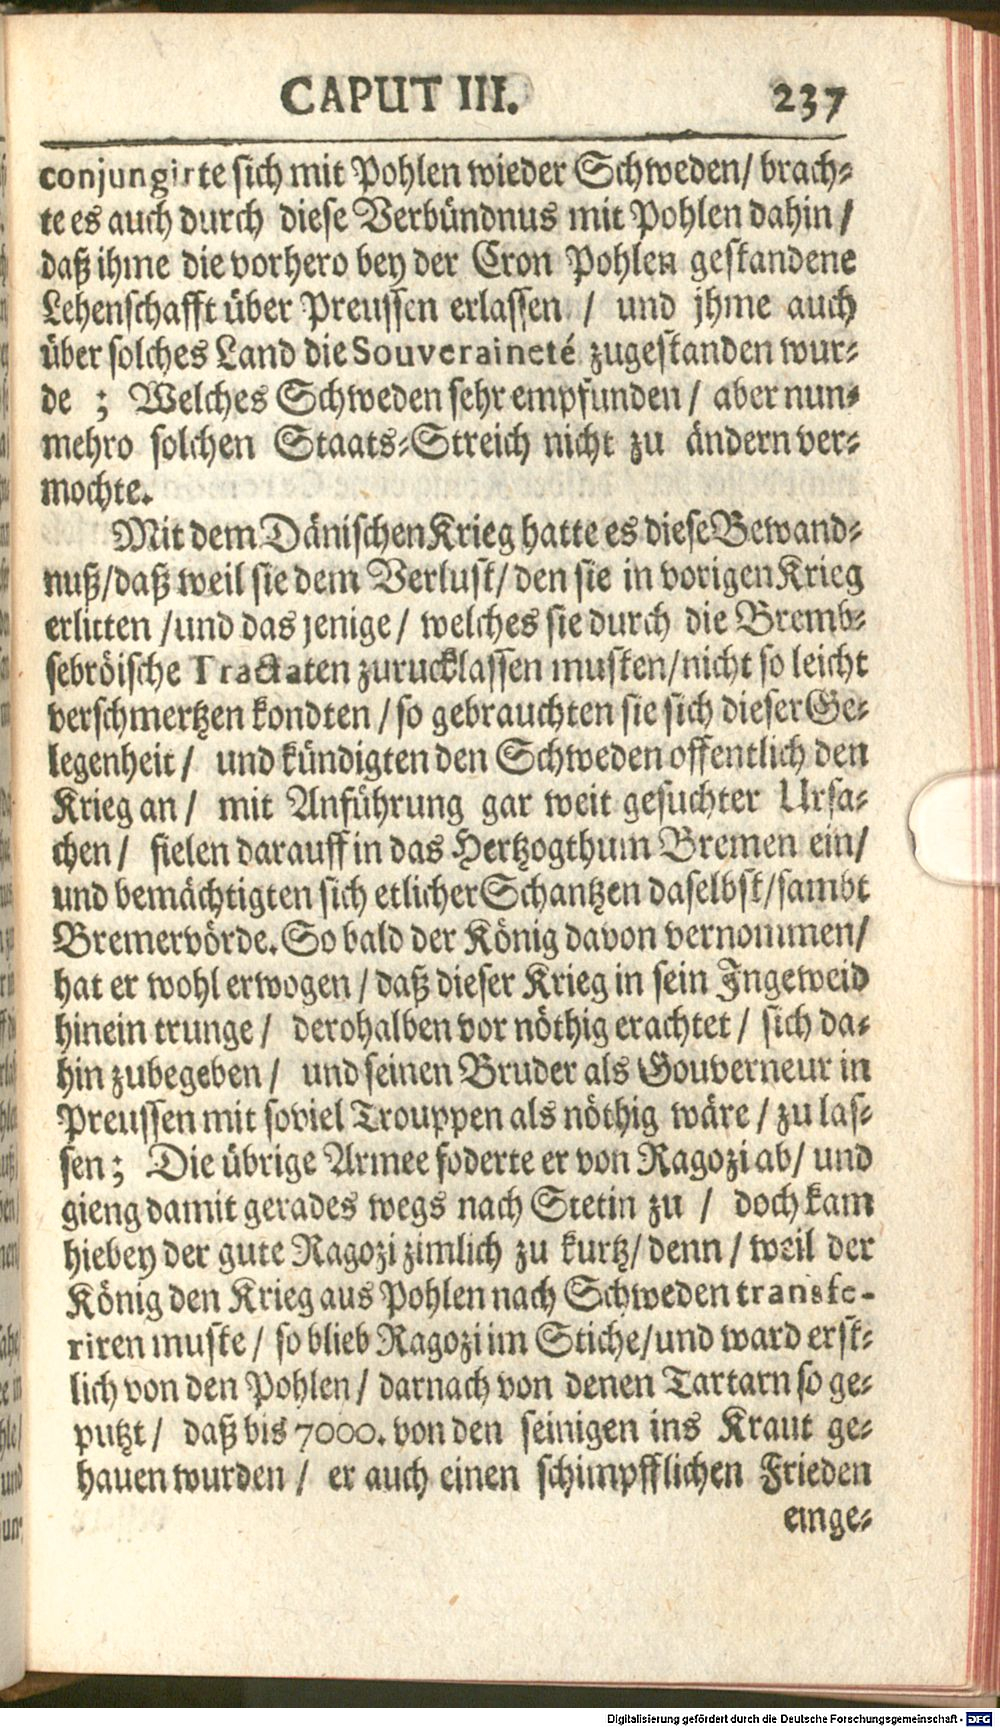 CAPUT III. 237
conjungirte sich mit Pohlen wieder Schweden/ brach-
te es auch durch diese Verbündnus mit Pohlen dahin /
daß ihme die vorhero bey der Cron Pohlen gestandene
Lehenschafft über Preussen erlassen / und jhme auch
über solches Land die Souveraineté zugestanden wur-
de ; Welches Schweden sehr empfunden / aber nun-
mehro solchen Staats-Streich nicht zu ändern ver-
mochte.
Mit dem Dänischen Krieg hatte es diese Bewand-
nuß/daß weil sie dem Verlust/ den sie in vorigen Krieg
erlitten /und das jenige / welches sie durch die Bremb-
sebröische Tractaten zurucklassen musten/nicht so leicht
verschmertzen kondten / so gebrauchten sie sich dieser Ge-
legenheit / und kündigten den Schweden offentlich den
Krieg an / mit Anführung gar weit gesuchter Ursa-
chen / fielen darauff in das Hertzogthum Bremen ein/
und bemächtigten sich etlicher Schantzen daselbst/sambt
Bremervörde. So bald der König davon vernommen/
hat er wohl erwogen / daß dieser Krieg in sein Ingeweid
hinein trunge / derohalben vor nöthig erachtet / sich da-
hin zubegeben / und seinen Bruder als Gouverneur in
Preussen mit soviel Trouppen als nöthig wäre / zu las-
sen ; Die übrige Armee foderte er von Ragozi ab/ und
gieng damit gerades wegs nach Stetin zu / doch kam
hiebey der gute Ragozi zimlich zu kurtz/ denn / weil der
König den Krieg aus Pohlen nach Schweden transfe-
riren muste / so blieb Ragozi im Stiche/und ward erst-
lich von den Pohlen / darnach von denen Tartarn so ge-
putzt / daß bis 7000. von den seinigen ins Kraut ge-
hauen wurden / er auch einen schimpfflichen Frieden
einge-
Digitalisierung gefördert durch die Deutsche Forschungsgemeinschaft - DFG